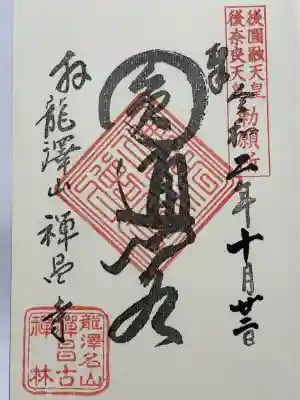 後圓融天皇
後奈良天皇
勅願所
奉
令和二年十月廿二日
圓通閣
拝
龍澤山禅昌寺
龍澤名山
禪昌古
禅林